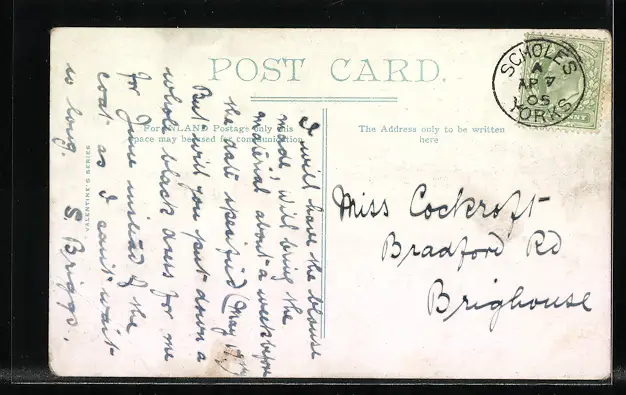 POST CARD.
For INLAND Postage only this
space may be used for communication
The Address only to be written
here
SCHOLES
A
AP 7
05
YORKS
Miss Cockroft
Bradford Rd
Brighouse
I will have the blouse
made, will bring the
material about a week before
the date specified (May 19th)
But will you put down a
whole black dress for me
for June instead of the
coat as I can't wait
so long. S Briggs.
VALENTINE'S SERIES